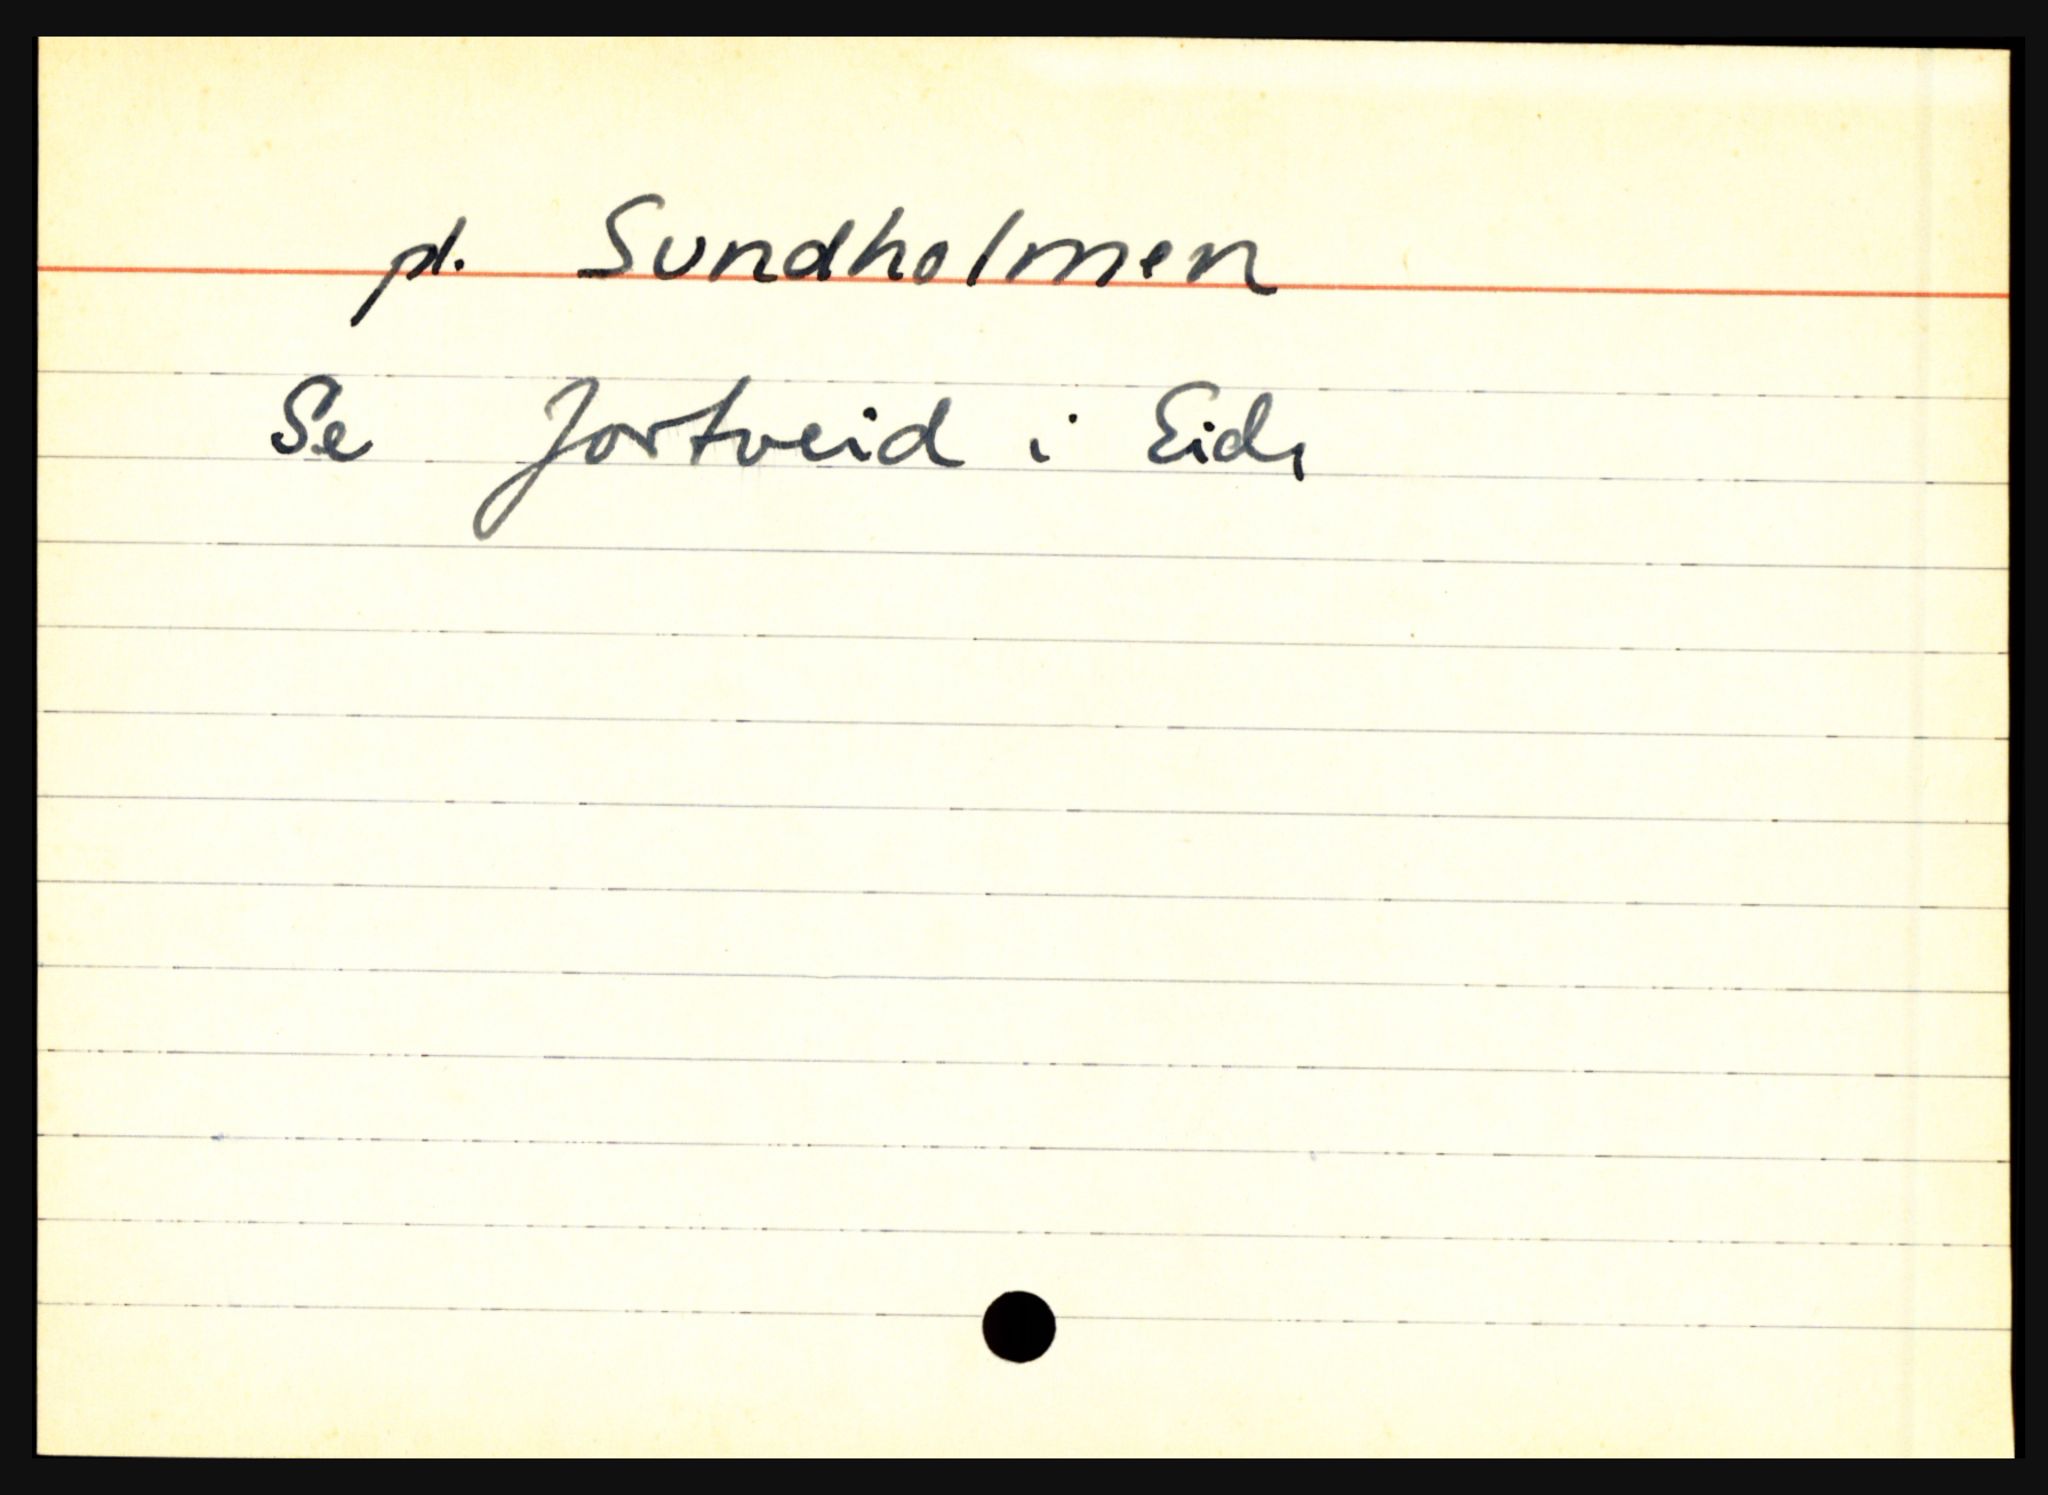 pl. Sundholmen
Se Jortveid i Eide